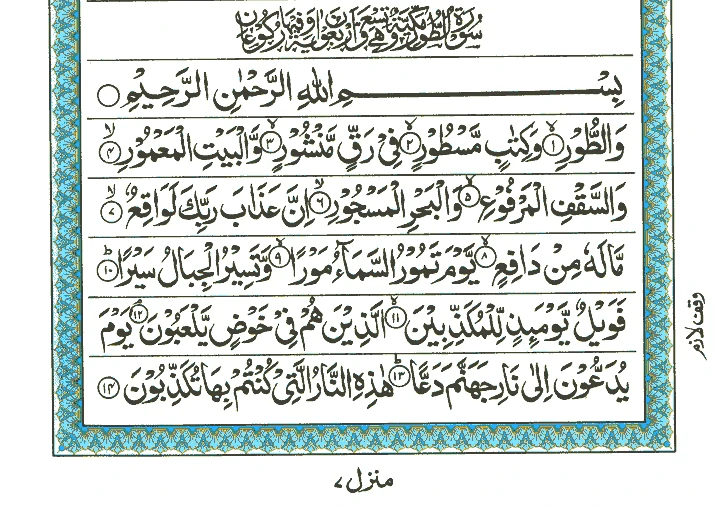 سُوْرَةُ الطُّوْرِ مَكِّيَّةٌ وَّهِيَ تِسْعٌ وَّاَرْبَعُوْنَ اٰيَةً وَّفِيْهَا رُكُوْعَانِ
بِسْـــــــــمِ اللهِ الرَّحْمٰنِ الرَّحِيْمِ ۝
وَالطُّوْرِ ۙ﴿۱﴾ وَكِتٰبٍ مَّسْطُوْرٍ ۙ﴿۲﴾ فِيْ رَقٍّ مَّنْشُوْرٍ ۙ﴿۳﴾ وَّالْبَيْتِ الْمَعْمُوْرِ ۙ﴿۴﴾
وَالسَّقْفِ الْمَرْفُوْعِ ۙ﴿۵﴾ وَالْبَحْرِ الْمَسْجُوْرِ ۙ﴿۶﴾ اِنَّ عَذَابَ رَبِّكَ لَوَاقِعٌ ۙ﴿۷﴾
مَّا لَهٗ مِنْ دَافِعٍ ۙ﴿۸﴾ يَّوْمَ تَمُوْرُ السَّمَآءُ مَوْرًا ۙ﴿۹﴾ وَّتَسِيْرُ الْجِبَالُ سَيْرًا ؕ﴿۱۰﴾
فَوَيْلٌ يَّوْمَىِٕذٍ لِّلْمُكَذِّبِيْنَ ۙ﴿۱۱﴾ الَّذِيْنَ هُمْ فِيْ خَوْضٍ يَّلْعَبُوْنَ ۘ﴿۱۲﴾ يَوْمَ
يُدَعُّوْنَ اِلٰى نَارِ جَهَنَّمَ دَعًّا ؕ﴿۱۳﴾ هٰذِهِ النَّارُ الَّتِيْ كُنْتُمْ بِهَا تُكَذِّبُوْنَ ﴿۱۴﴾
وقف لازم
منزل ۷